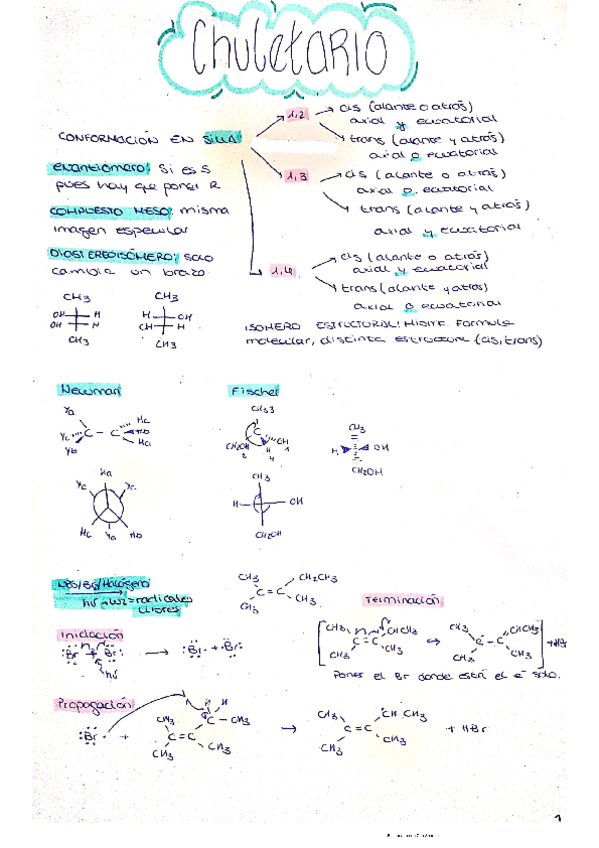 Chuletario
CONFORMACIÓN EN SILLA:
1,2
cis (alante o atrás)
axial y ecuatorial
trans (alante y atrás)
axial o ecuatorial
1,3
cis (alante o atrás)
axial o ecuatorial
trans (alante y atrás)
axial y ecuatorial
1,4
cis (alante o atrás)
axial y ecuatorial
trans (alante y atrás)
axial o ecuatorial
enantiómero: Si es S
pues hay que poner R
COMPUESTO MESO: misma
imagen especular
solo
cambia un brazo
CH3 CH3
OH H H OH
OH H H
CH3 CH3
ISOMERO ESTRUCTURAL: Formula
molecular, distinta estructura (cis, trans)
Newman
Ya
Hc
Yc C - C Hb
Yb Ha
Ha
Yc Yc
Hc Ya Hb
Fischer
CH3 3
C
CH2OH OH
2 H 1
4
CH3
H OH
CH2OH
CH3
H OH
CH2OH
NBS/Br2/Halógeno
hν = luz = radicales
libres
CH3 CH2CH3
C=C
CH3 CH3
Iniciación
Br Br → Br + Br
hν
Terminación
CH3 CHCH3
C=C
CH3 CH3
↔
CH3 CHCH3
C - C
CH3 CH3
+ HBr
Poner el Br donde está el e- solo.
Propagación
Br +
H H
CH3 C - CH3
C=C
CH3 CH3
→
CH3 CH CH3
C=C
CH3 CH3
+ HBr
1